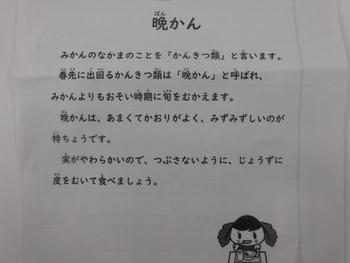 晩かん
みかんのなかまのことを「かんきつ類」と言います。
春先に出回るかんきつ類は「晩かん」と呼ばれ、
みかんよりもおそい時期に旬をむかえます。
晩かんは、あまくてかおりがよく、みずみずしいのが
特ちょうです。
実がやわらかいので、つぶさないように、じょうずに
皮をむいて食べましょう。